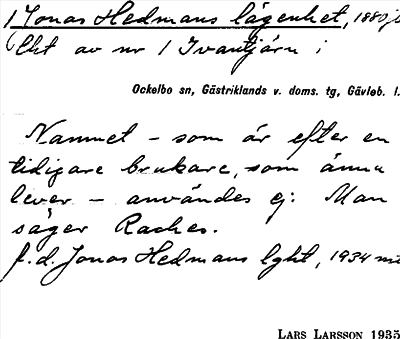 Jonas Hedmans lägenhet, 1880 j
Lht av nr 1 Ivantjärn i
Ockelbo sn, Gästriklands v. doms. tg, Gävleb. l.
Namnet – som är efter en
tidigare brukare, som ännu
lever – användes ej. Man
säger Raches.
f.d. Jonas Hedmans lght, 1934 mt
LARS LARSSON 1935